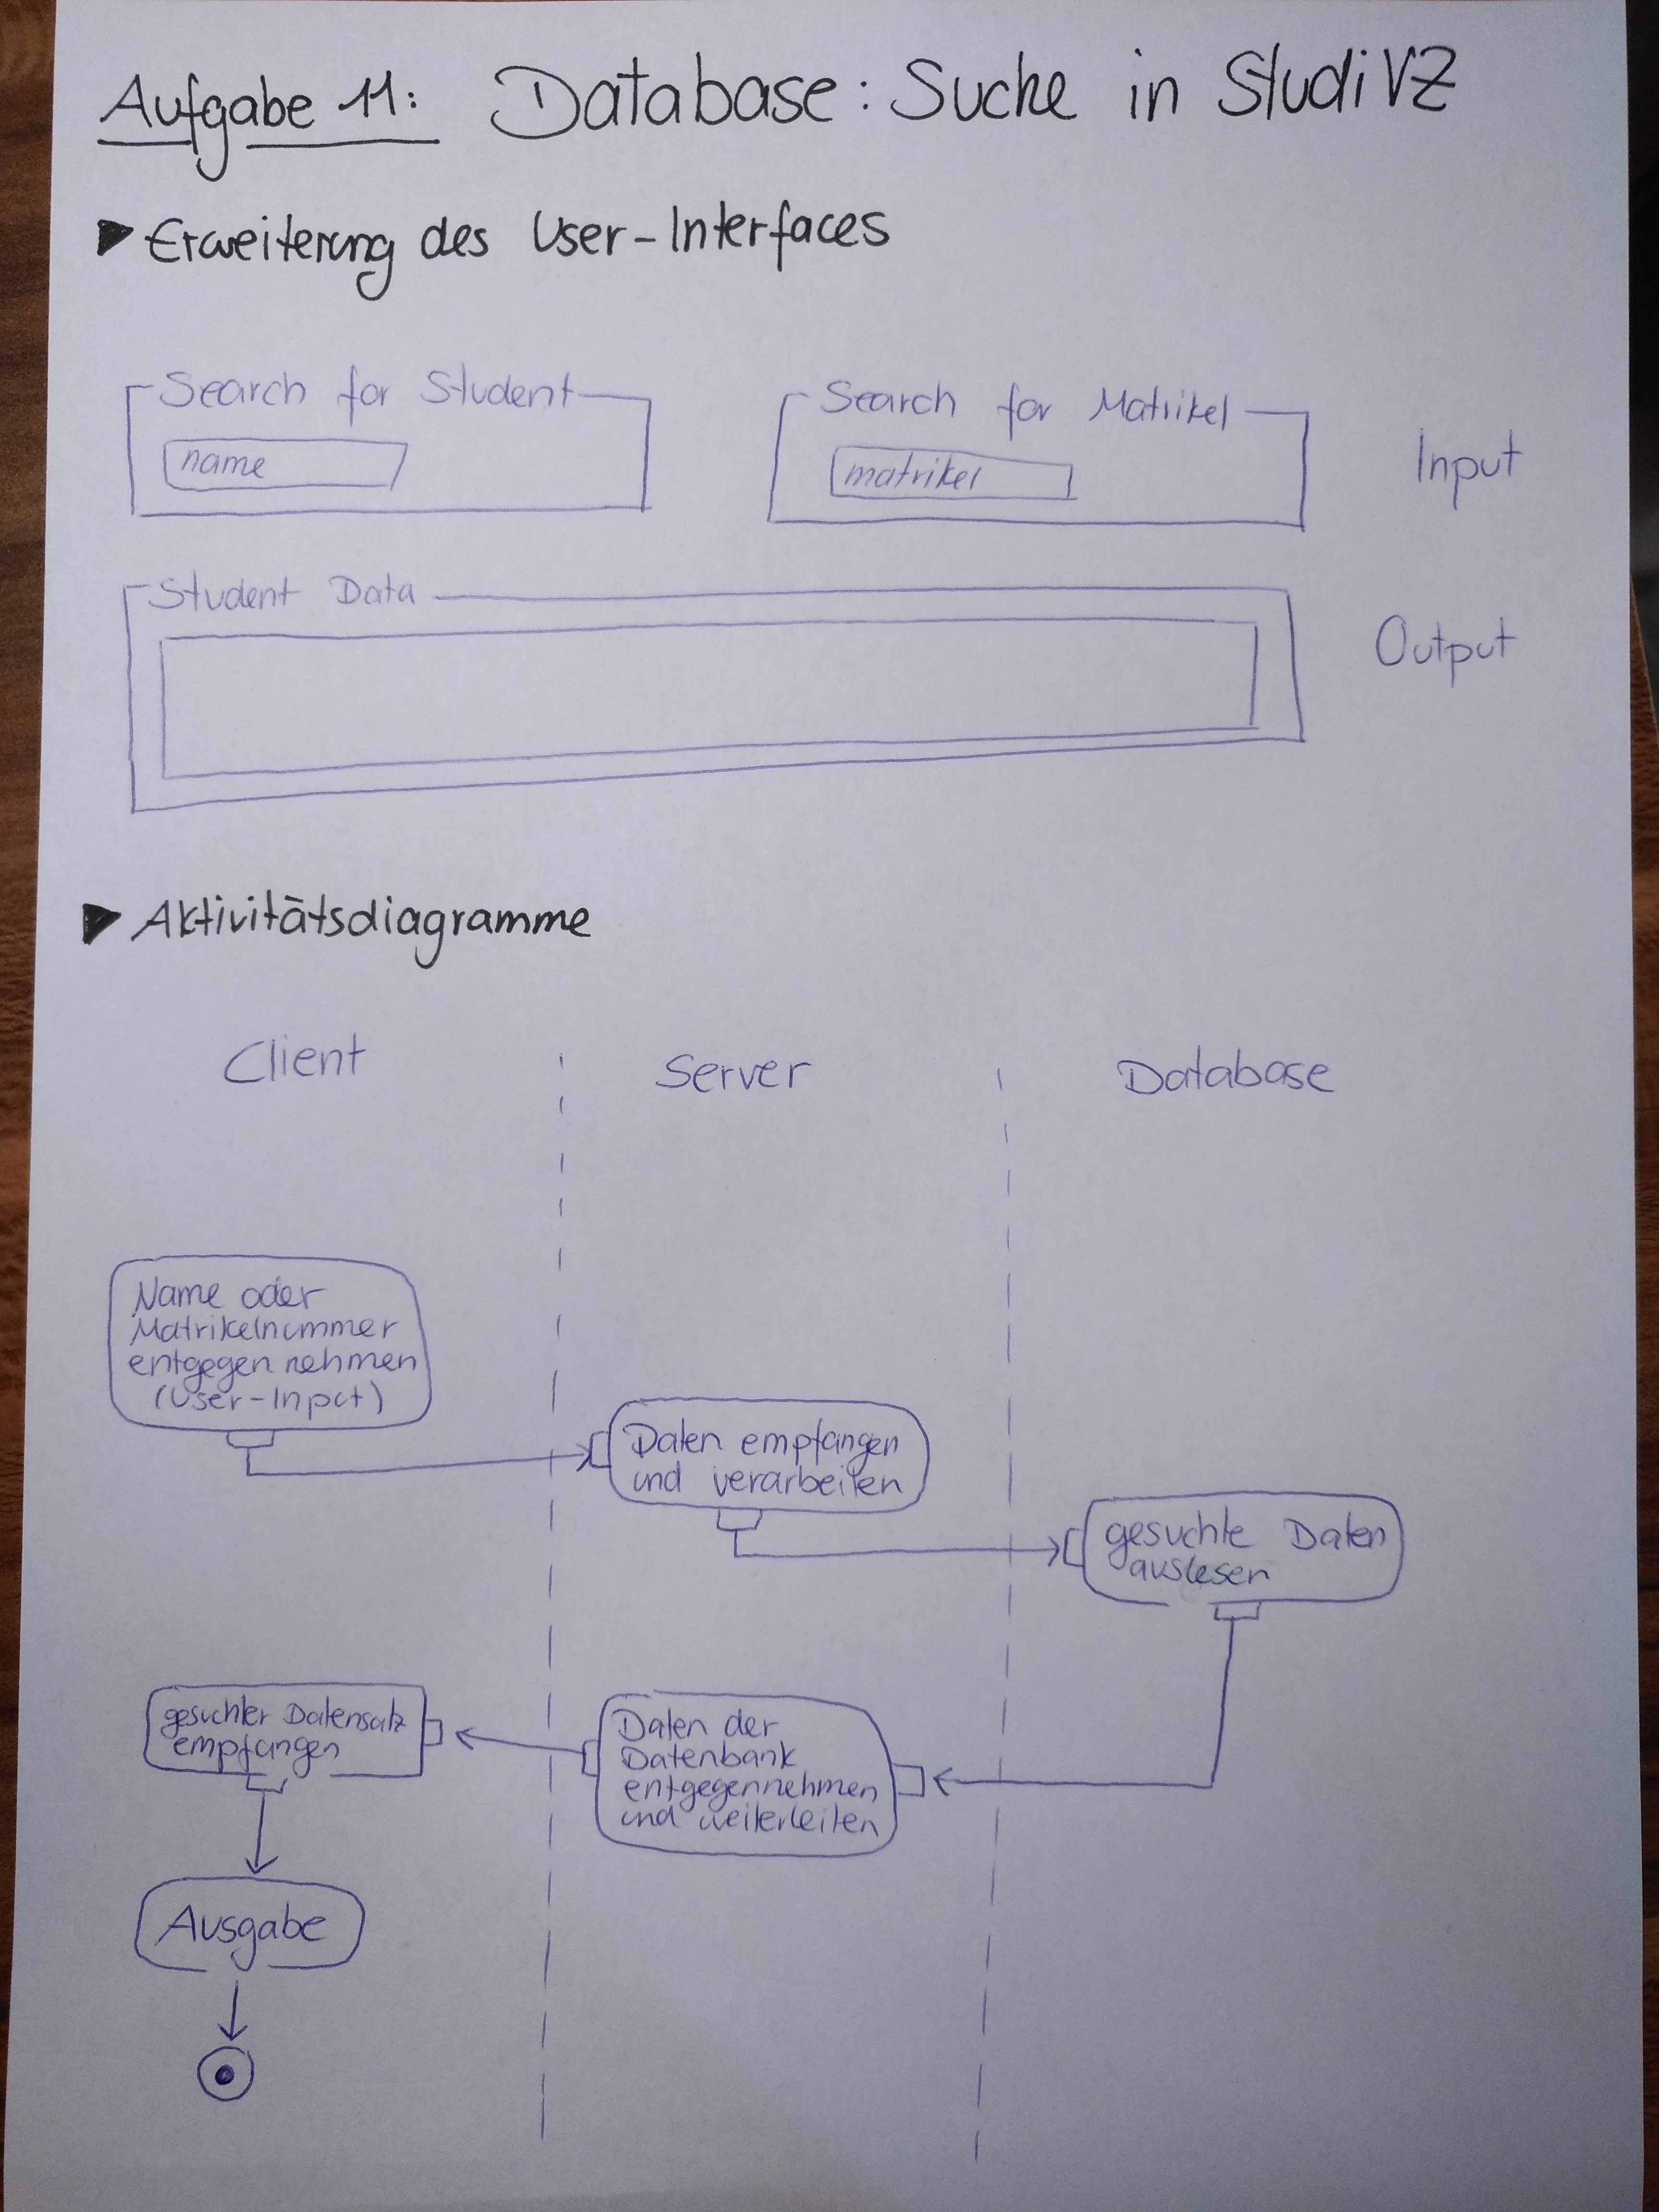 Aufgabe 11: Database: Suche in StudiVZ
Erweiterung des User-Interfaces
Search for Student
name
Search for Matrikel
matrikel
Input
Student Data
Output
Aktivitätsdiagramme
Client
Server
Database
Name oder
Matrikelnummer
entgegen nehmen
(User-Input)
Daten empfangen
und verarbeiten
gesuchte Daten
auslesen
Daten der
Datenbank
entgegennehmen
und weiterleiten
gesuchter Datensatz
empfangen
Ausgabe